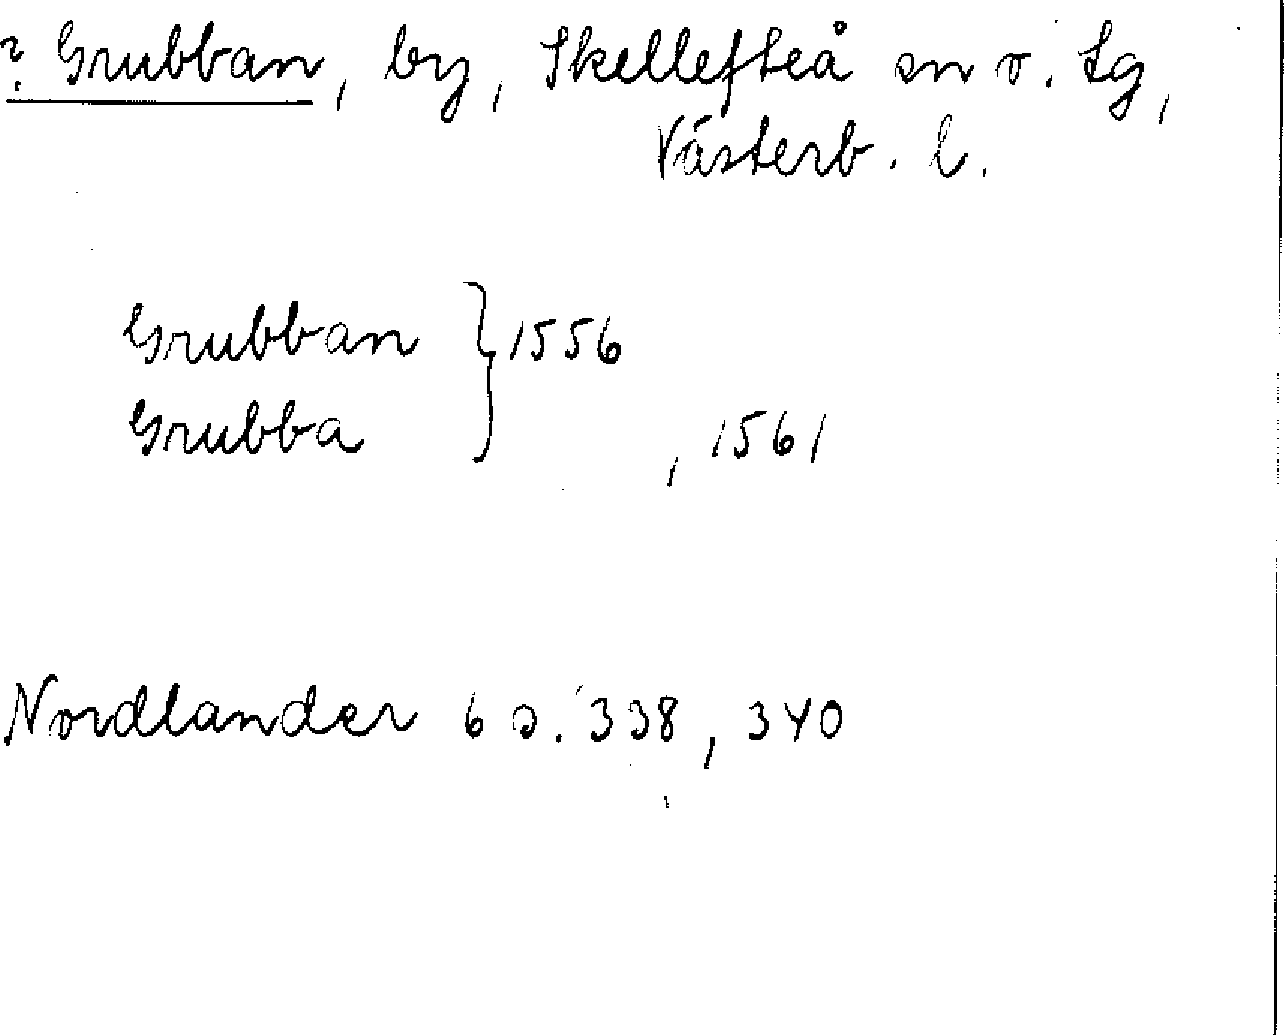 ? Grubban, by, Skellefteå sn o. tg,
Västerb. l.
Grubban } 1556
Grubba } , 1561
Nordlander 6 s. 338, 340